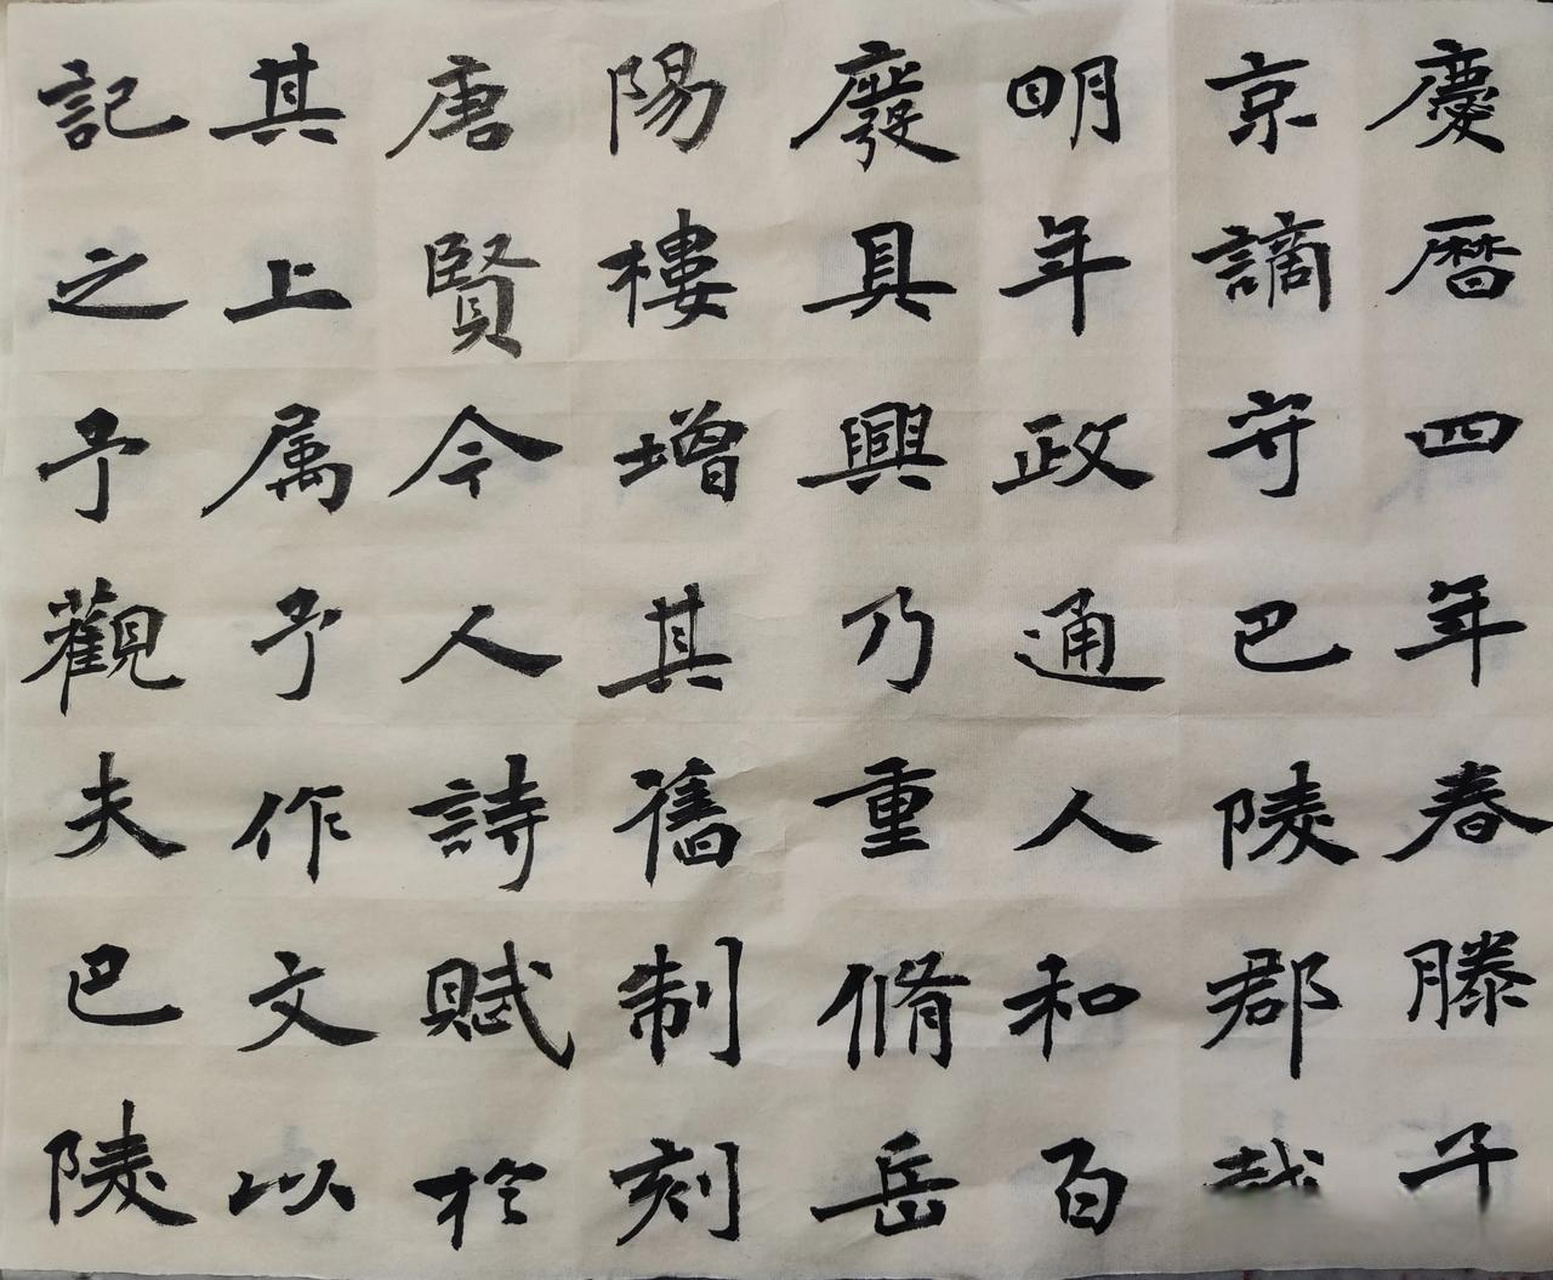 慶曆四年春滕子
京謫守巴陵郡
明年政通人和百
廢具興乃重脩岳
陽樓增其舊制刻
唐賢今人詩賦於
其上属予作文以
記之予觀夫巴陵